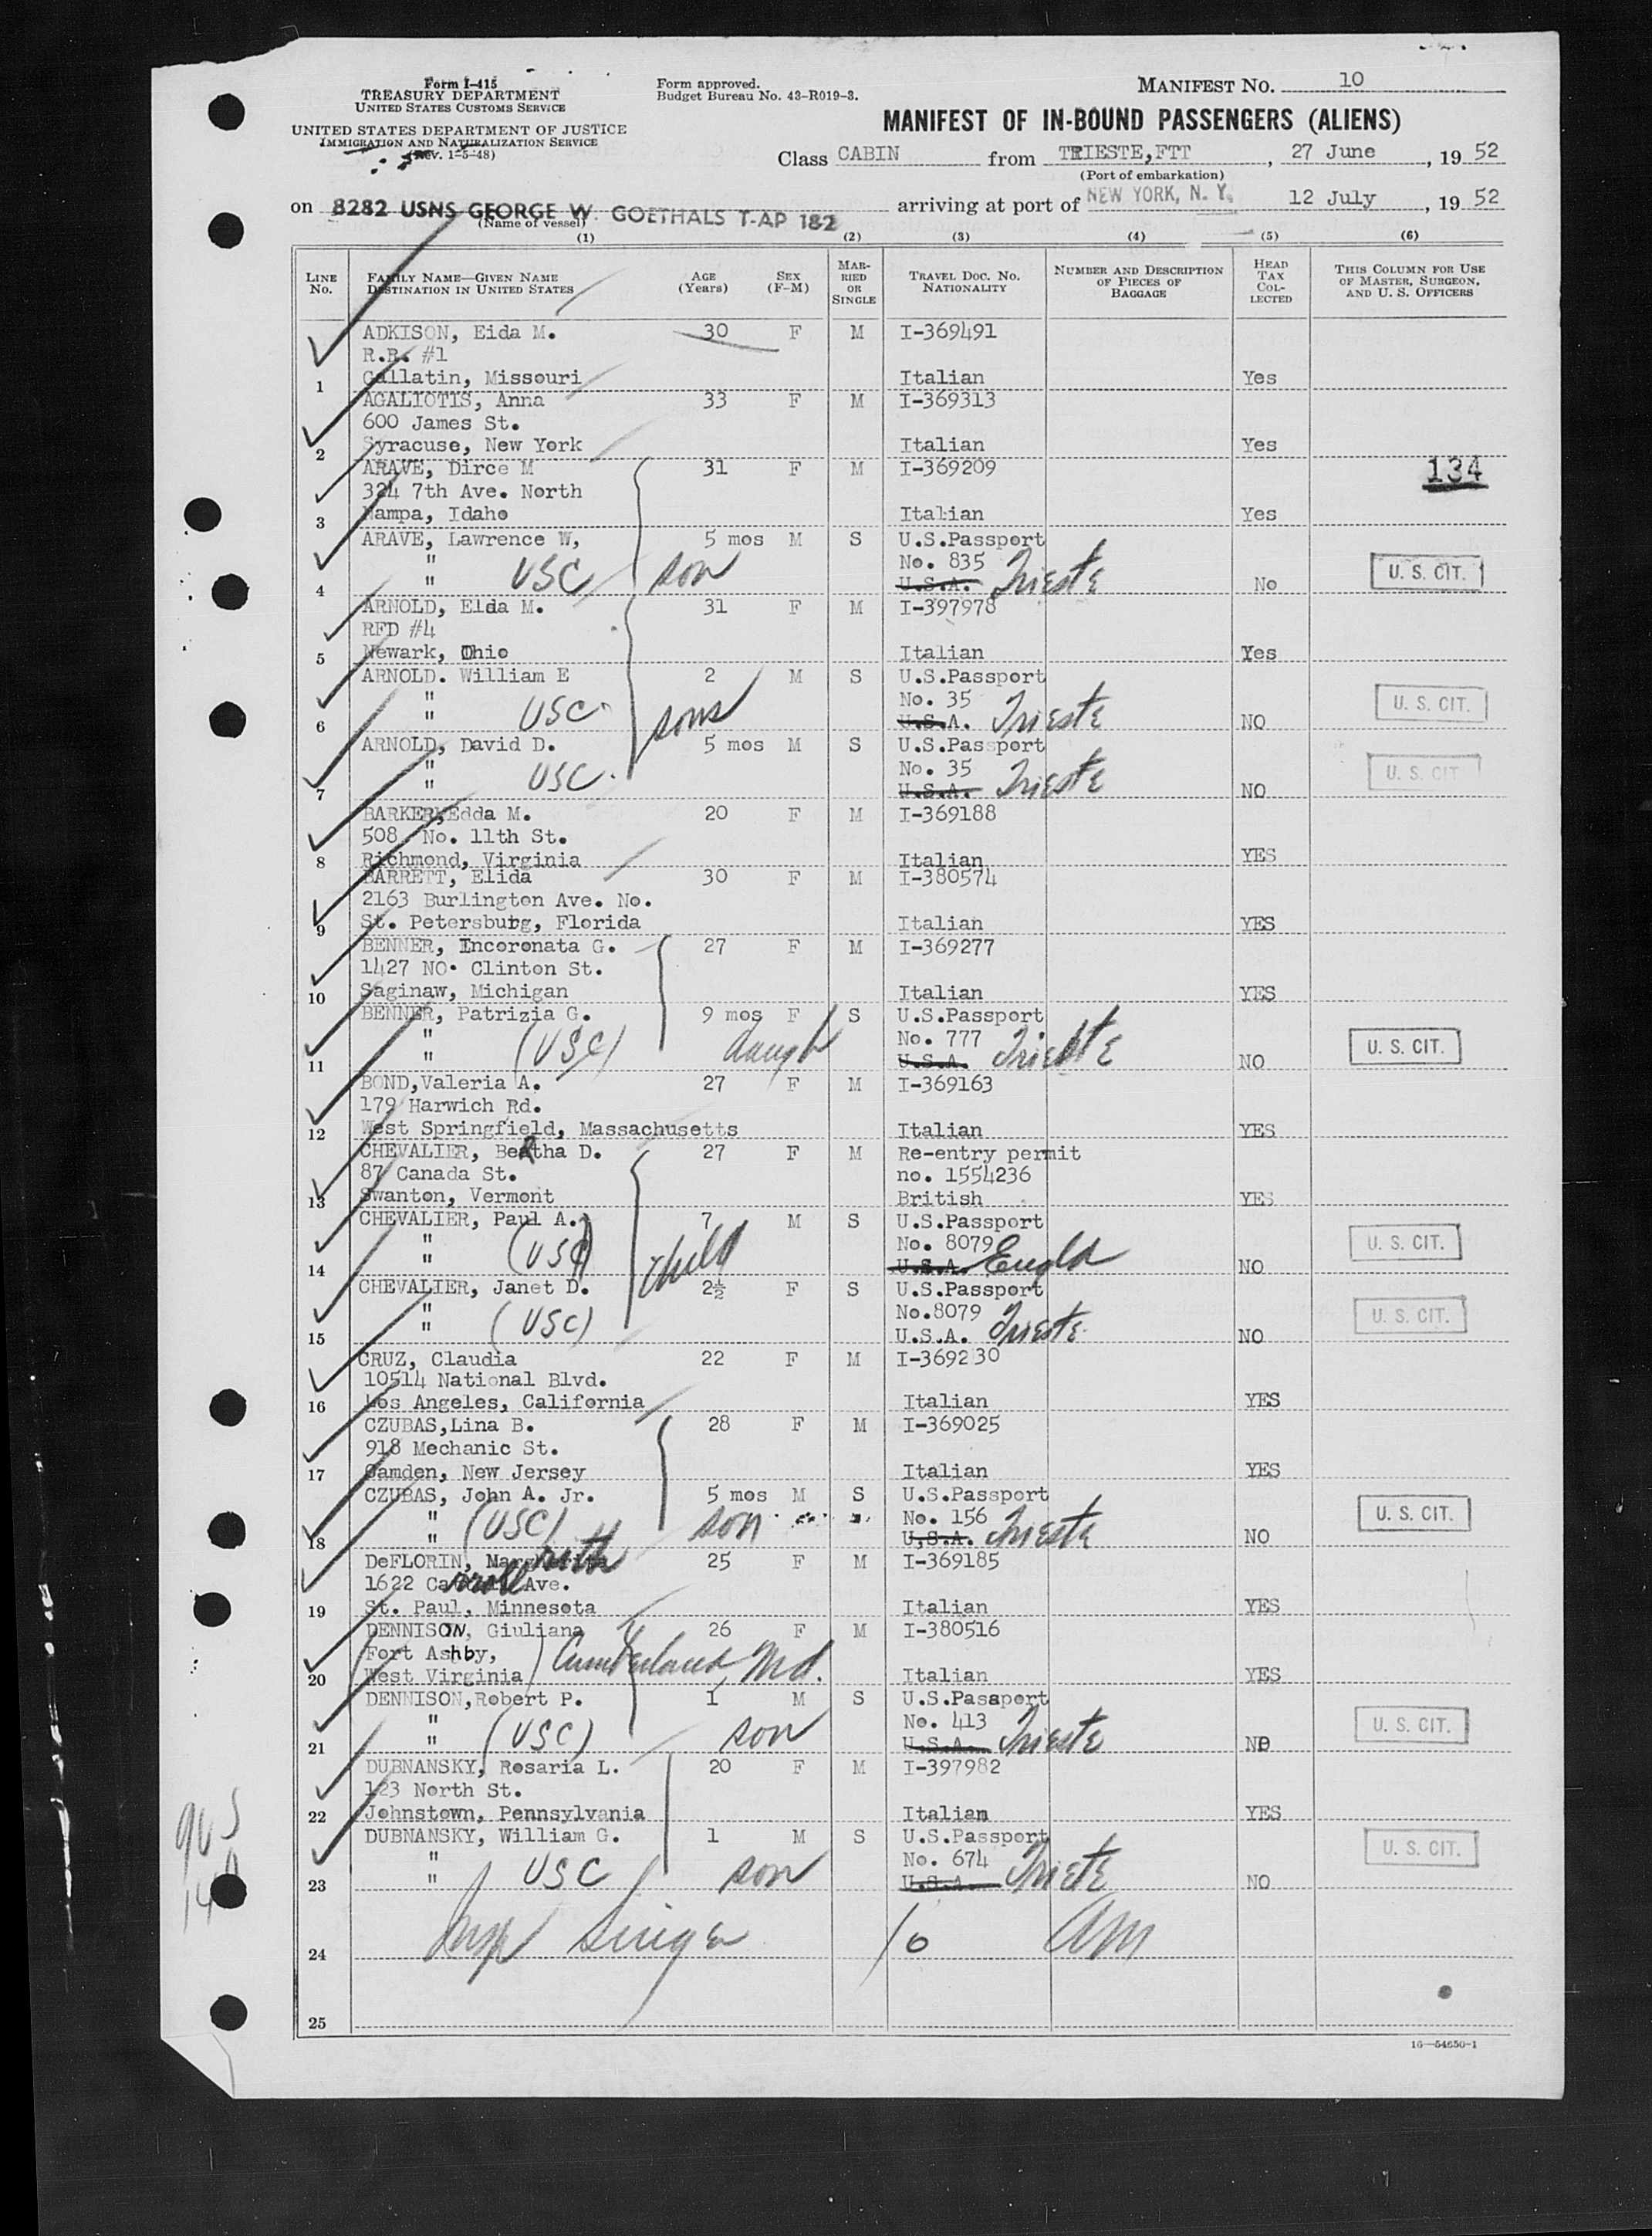 Form I-415
TREASURY DEPARTMENT
UNITED STATES CUSTOMS SERVICE
UNITED STATES DEPARTMENT OF JUSTICE
IMMIGRATION AND NATURALIZATION SERVICE
(Rev. 1-5-48)
Form approved.
Budget Bureau No. 43-R019-3.
MANIFEST NO. 10
MANIFEST OF IN-BOUND PASSENGERS (ALIENS)
Class CABIN from TRIESTE,FTT, 27 June, 19 52
(Port of embarkation)
on 8282 USNS GEORGE W. GOETHALS T-AP 182 arriving at port of NEW YORK, N. Y. 12 July, 19 52
(Name of vessel)
(1) (2) (3) (4) (5) (6)
LINE No. FAMILY NAME—GIVEN NAME DESTINATION IN UNITED STATES AGE (Years) SEX (F-M) MARRIED OR SINGLE TRAVEL DOC. NO. NATIONALITY NUMBER AND DESCRIPTION OF PIECES OF BAGGAGE HEAD TAX COLLECTED THIS COLUMN FOR USE OF MASTER, SURGEON, AND U. S. OFFICERS
ADKISON, Eida M. 30 F M I-369491
R.R. #1
1 Gallatin, Missouri Italian Yes
AGALIOTIS, Anna 33 F M I-369313
600 James St.
2 Syracuse, New York Italian Yes
ARAVE, Dirce M 31 F M I-369209 134
324 7th Ave. North
3 Nampa, Idaho Italian Yes
ARAVE, Lawrence W, 5 mos M S U.S.Passport
" No. 835
4 " USC son U.S.A. Trieste No U. S. CIT.
ARNOLD, Elda M. 31 F M I-397978
RFD #4
5 Newark, Ohio Italian Yes
ARNOLD. William E 2 M S U.S.Passport
" No. 35
6 " USC sons U.S.A. Trieste NO U. S. CIT.
ARNOLD, David D. 5 mos M S U.S.Passport
" No. 35
7 " USC U.S.A. Trieste NO U. S. CIT
BARKER,Edda M. 20 F M I-369188
508 No. 11th St.
8 Richmond, Virginia Italian YES
BARRETT, Elida 30 F M I-380574
2163 Burlington Ave. No.
9 St. Petersburg, Florida Italian YES
BENNER, Incoronata G. 27 F M I-369277
1427 NO. Clinton St.
10 Saginaw, Michigan Italian YES
BENNER, Patrizia G. 9 mos F S U.S.Passport
" No. 777
11 " (USC) daugh U.S.A. Trieste NO U. S. CIT.
BOND,Valeria A. 27 F M I-369163
179 Harwich Rd.
12 West Springfield, Massachusetts Italian YES
CHEVALIER, BeRtha D. 27 F M Re-entry permit
87 Canada St. no. 1554236
13 Swanton, Vermont British YES
CHEVALIER, Paul A. 7 M S U.S.Passport
" No. 8079
14 " (USC) child U.S.A. Engld NO U. S. CIT.
CHEVALIER, Janet D. 2½ F S U.S.Passport
" No.8079
15 " (USC) U.S.A. Trieste NO U. S. CIT.
CRUZ, Claudia 22 F M I-369230
10514 National Blvd.
16 Los Angeles, California Italian YES
CZUBAS,Lina B. 28 F M I-369025
918 Mechanic St.
17 Camden, New Jersey Italian YES
CZUBAS, John A. Jr. 5 mos M S U.S.Passport
" No. 156
18 " (USC) son U.S.A. Trieste NO U. S. CIT.
DeFLORIN, 25 F M I-369185
1622 Ave.
19 St. Paul, Minnesota Italian YES
DENNISON, Giuliana 26 F M I-380516
Fort Ashby,
20 West Virginia Cumberland, Md. Italian YES
DENNISON,Robert P. 1 M S U.S.Passport
" No. 413
21 " (USC) son U.S.A. Trieste NO U. S. CIT.
DUBNANSKY, Rosaria L. 20 F M I-397982
123 North St.
22 Johnstown, Pennsylvania Italian YES
DUBNANSKY, William G. 1 M S U.S.Passport
" No. 674
23 " USC son U.S.A. Triete NO U. S. CIT.
24
25
16—54650-1